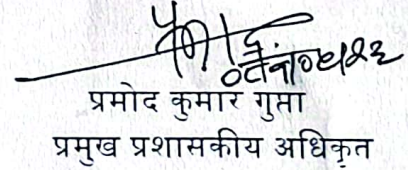 प्रमोद कुमार गुप्ता
प्रमुख प्रशासकीय अधिकृत